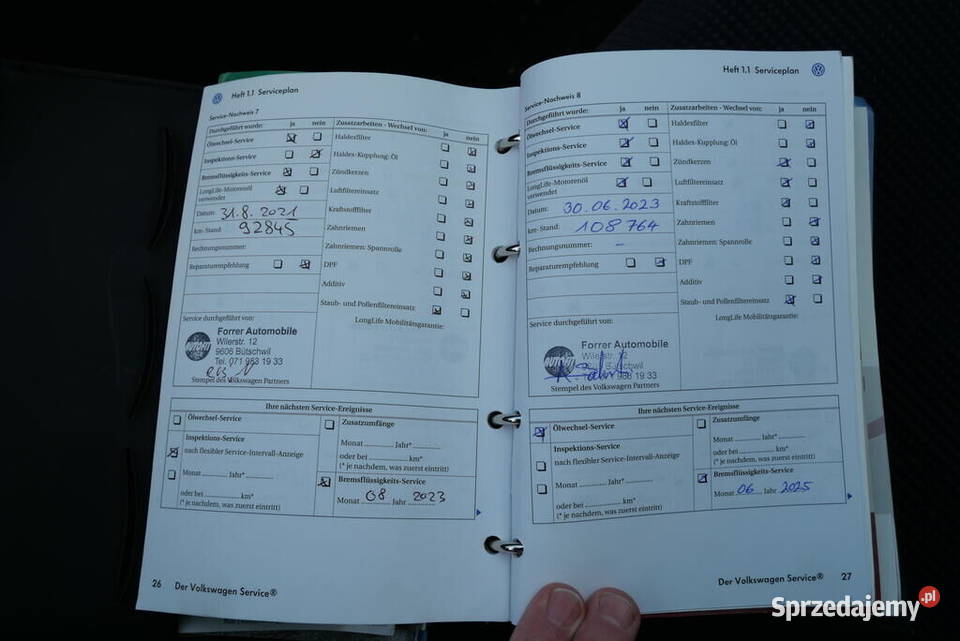 Heft 1.1 Serviceplan
Service-Nachweis 7
Durchgeführt wurde: ja nein
Ölwechsel-Service
Inspektions-Service
Bremsflüssigkeits-Service
LongLife-Motorenöl
verwendet
Datum: 31.8.2021
km-Stand: 92845
Rechnungsnummer:
Reparaturempfehlung
Zusatzarbeiten - Wechsel von: ja nein
Haldexfilter
Haldex-Kupplung: Öl
Zündkerzen
Luftfiltereinsatz
Kraftstofffilter
Zahnriemen
Zahnriemen: Spannrolle
DPF
Additiv
Staub- und Pollenfiltereinsatz
LongLife Mobilitätsgarantie:
Service durchgeführt von:
AUTOFIT
Forrer Automobile
Wilerstr. 12
9606 Bütschwil
Tel. 071 983 19 33
Stempel des Volkswagen Partners
Ihre nächsten Service-Ereignisse
Ölwechsel-Service
Inspektions-Service
nach flexibler Service-Intervall-Anzeige
Monat Jahr*
oder bei km*
(* je nachdem, was zuerst eintritt)
Zusatzumfänge
Monat Jahr*
oder bei km*
(* je nachdem, was zuerst eintritt)
Bremsflüssigkeits-Service
Monat 08 Jahr 2023
26 Der Volkswagen Service®
Heft 1.1 Serviceplan
Service-Nachweis 8
Durchgeführt wurde: ja nein
Ölwechsel-Service
Inspektions-Service
Bremsflüssigkeits-Service
LongLife-Motorenöl
verwendet
Datum: 30.06.2023
km-Stand: 108764
Rechnungsnummer: -
Reparaturempfehlung
Zusatzarbeiten - Wechsel von: ja nein
Haldexfilter
Haldex-Kupplung: Öl
Zündkerzen
Luftfiltereinsatz
Kraftstofffilter
Zahnriemen
Zahnriemen: Spannrolle
DPF
Additiv
Staub- und Pollenfiltereinsatz
LongLife Mobilitätsgarantie:
Service durchgeführt von:
AUTOFIT
Forrer Automobile
Wilerstr. 12
19 33
Stempel des Volkswagen Partners
Ihre nächsten Service-Ereignisse
Ölwechsel-Service
Inspektions-Service
nach flexibler Service-Intervall-Anzeige
Monat Jahr*
oder bei km*
(* je nachdem, was zuerst eintritt)
Zusatzumfänge
Monat Jahr*
oder bei km*
(* je nachdem, was zuerst eintritt)
Bremsflüssigkeits-Service
Monat 06 Jahr 2025
Der Volkswagen Service® 27
Sprzedajemy.pl